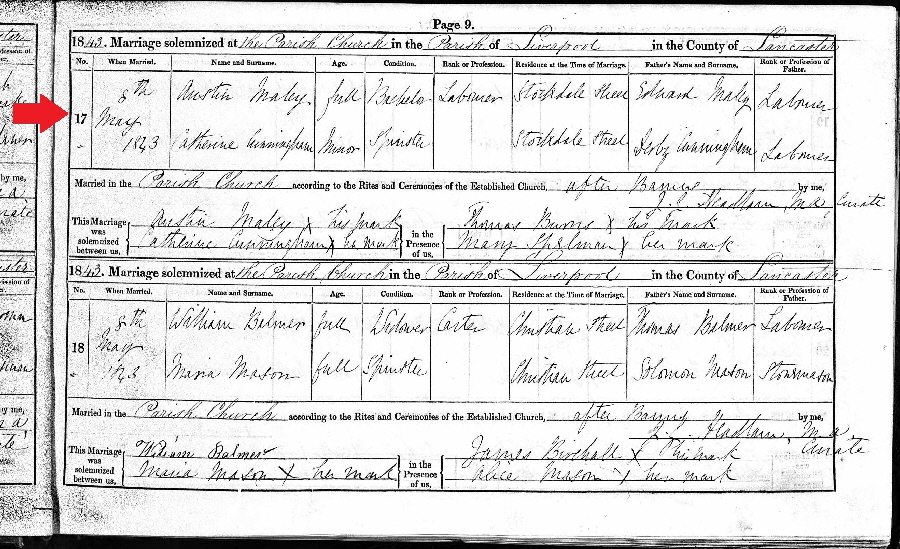 Page 9.
1843. Marriage solemnized at the Parish Church in the Parish of Liverpool in the County of Lancaster
No. When Married. Name and Surname. Age. Condition. Rank or Profession. Residence at the Time of Marriage. Father's Name and Surname. Rank or Profession of Father.
17 8th May 1843 Austin Maley full Bachelor Labourer Stockdale Street Edward Maley Labourer
Catherine Cunningham Minor Spinster Stockdale Street Cunningham Labourer
Married in the Parish Church according to the Rites and Ceremonies of the Established Church, after Banns by me,
J. Headlam M a Curate
This Marriage was solemnized between us, Austin Maley X his mark in the Presence of us, Thomas Burns X his mark
Catherine Cunningham X her mark Mary X her mark
1843. Marriage solemnized at the Parish Church in the Parish of Liverpool in the County of Lancaster
No. When Married. Name and Surname. Age. Condition. Rank or Profession. Residence at the Time of Marriage. Father's Name and Surname. Rank or Profession of Father.
18 8th May 1843 William Balmer full Widower Carter Christian Street Thomas Balmer Labourer
Maria Mason full Spinster Christian Street Solomon Mason Stonemason
Married in the Parish Church according to the Rites and Ceremonies of the Established Church, after Banns by me,
Headlam, M a Curate
This Marriage was solemnized between us, William Balmer in the Presence of us, James Birchall X his mark
Maria Mason X her mark Alice Mason X her mark